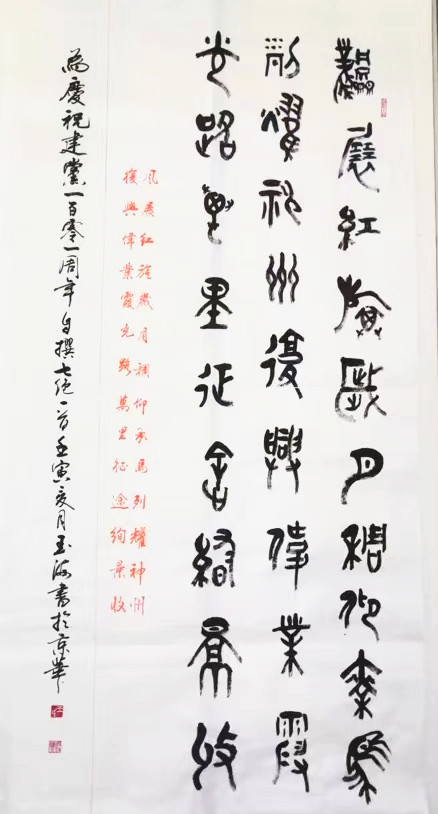 風展紅旗歲月稠仰承馬
列耀神州復興偉業霞
光路萬里征途絢景收
風展紅旗歲月稠仰承馬列耀神州
復興偉業霞光路萬里征途絢景收
為慶祝建黨一百零一周年自撰七絕一首壬寅夏月玉海書於京華